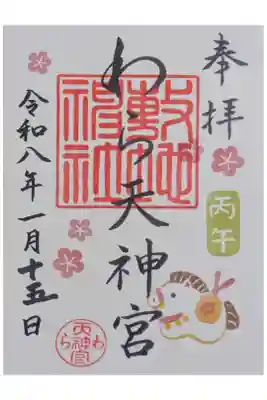 奉拝
丙午
わら天神宮
敷地
神社
令和八年一月十五日
わら天神宮